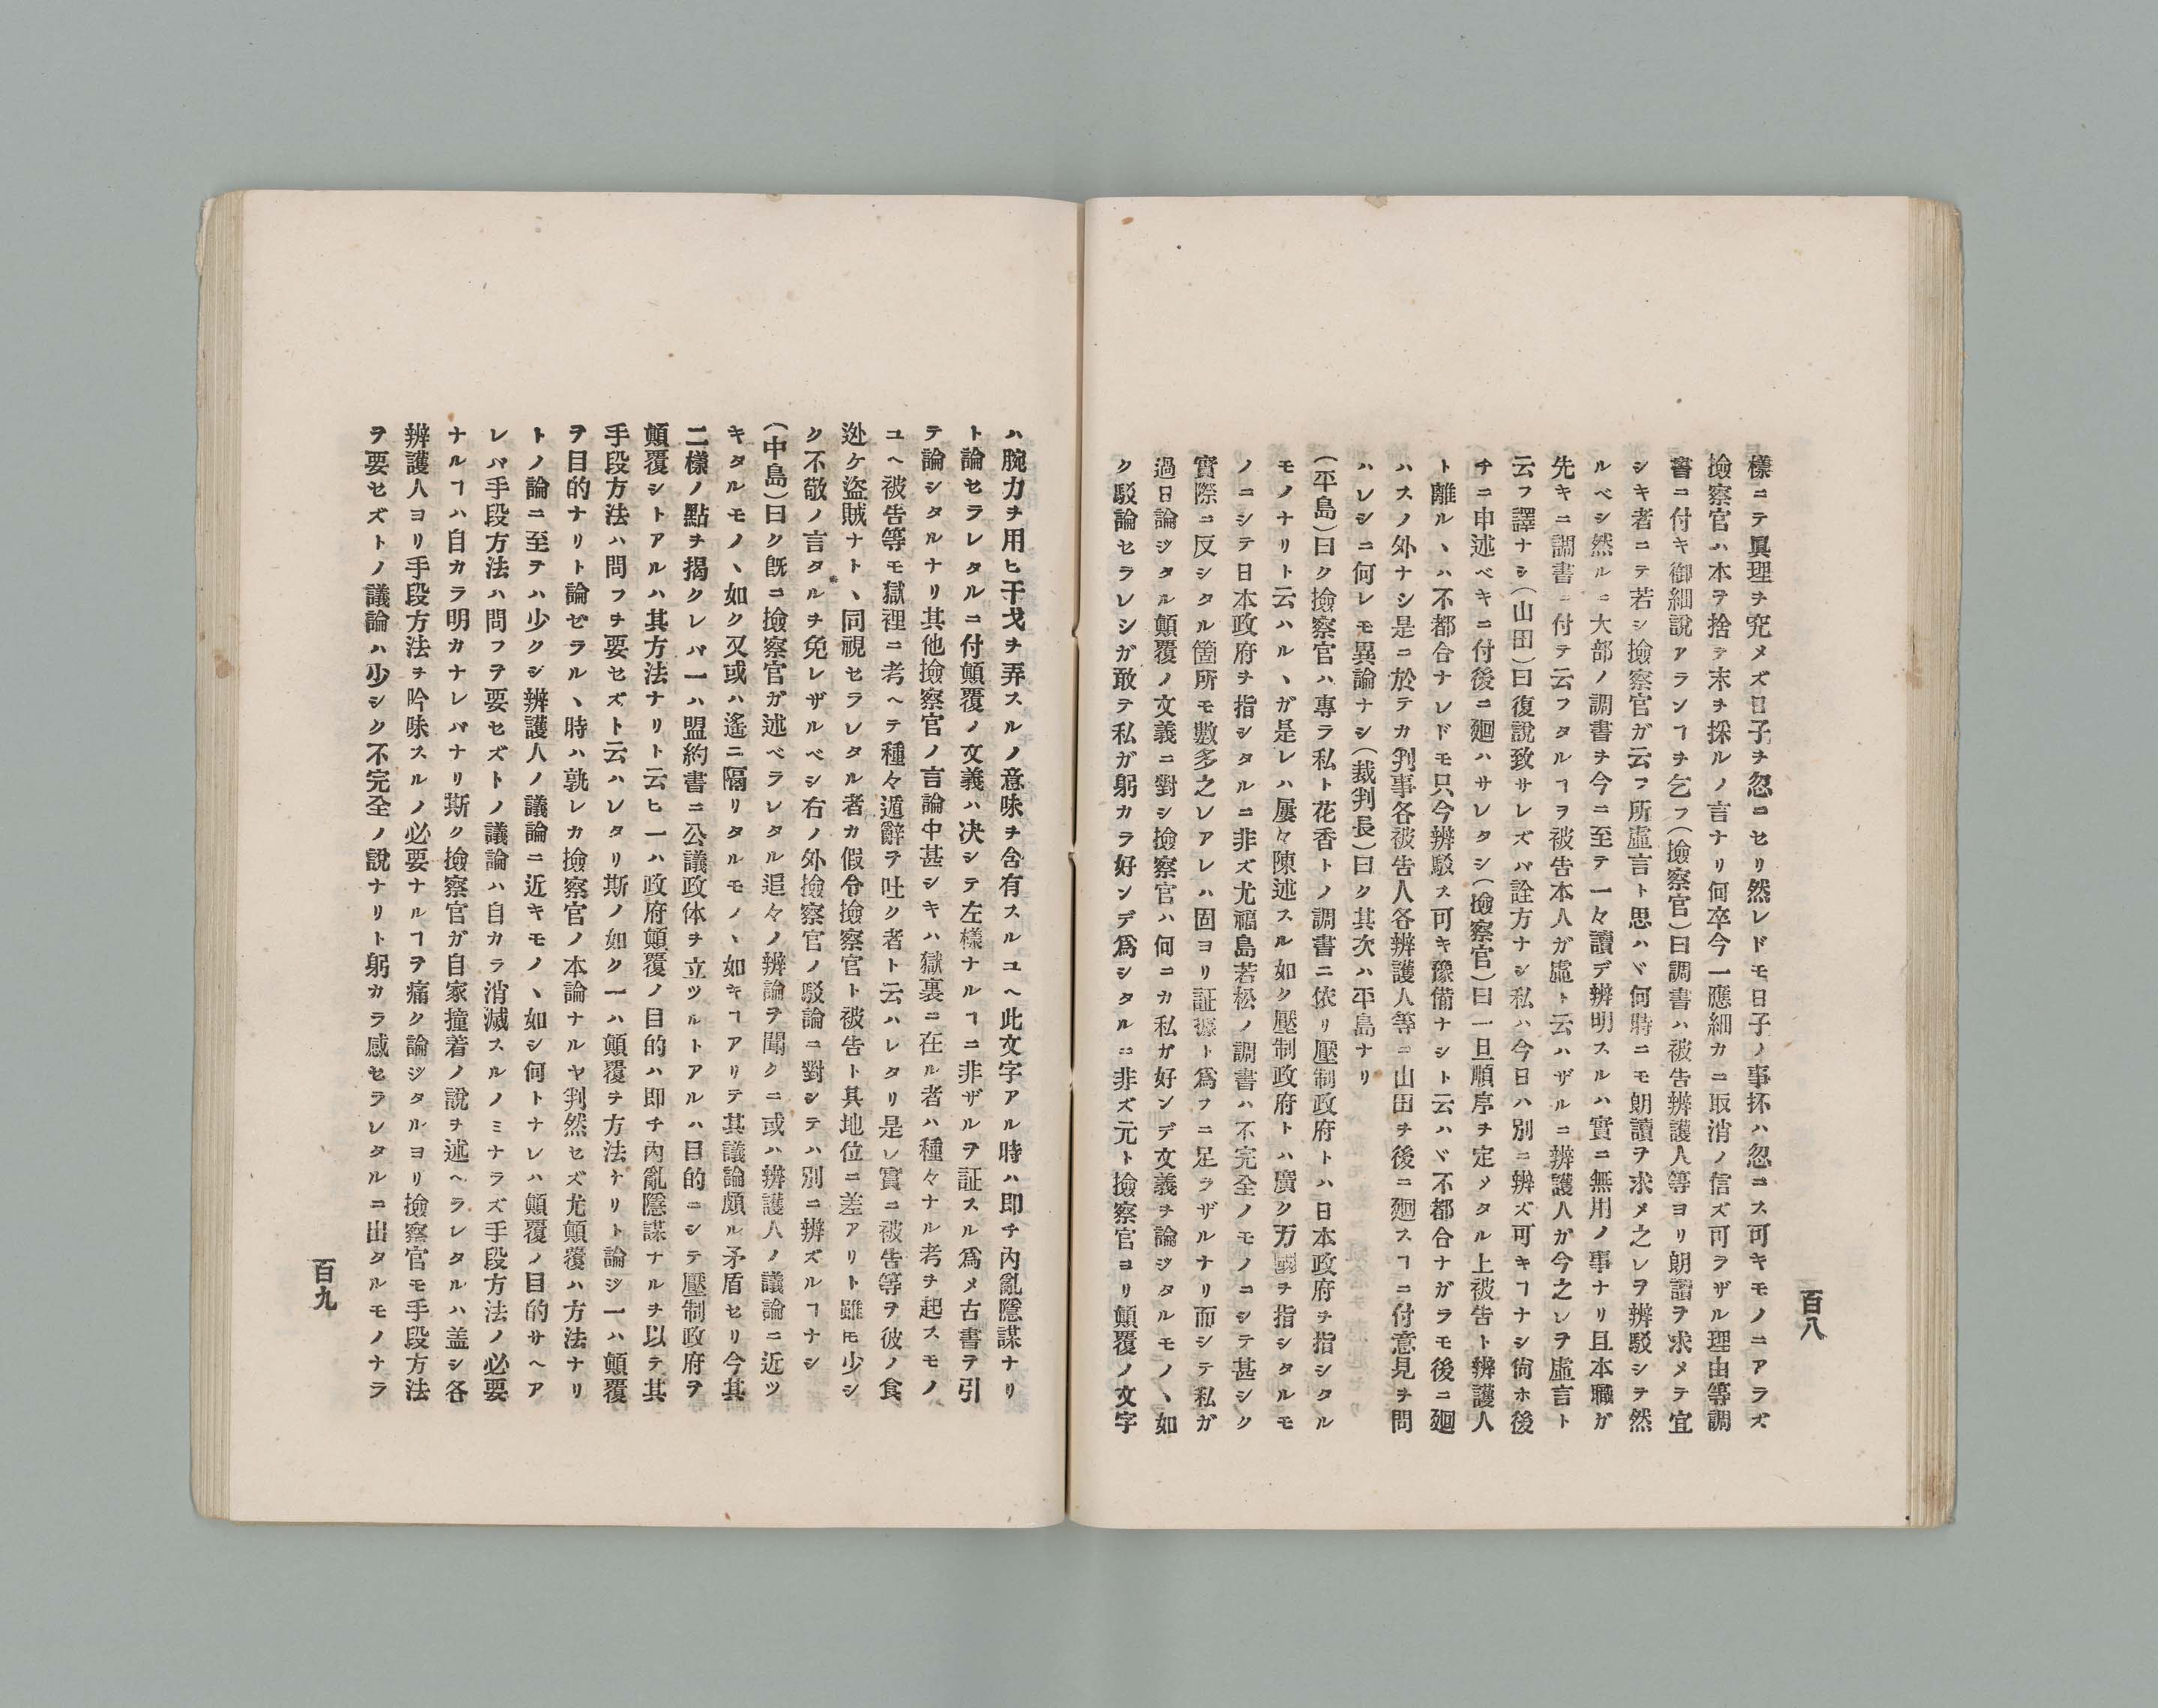 百八
樣ニテ眞理ヲ究メズ日子ヲ忽コセリ然レドモ日子ノ事抔ハ忽ニス可キモノニアラズ
撿察官ハ本ヲ捨テ末ヲ採ルノ言ナリ何卒今一應細カニ取消ノ信ズ可ラザル理由等調
書ニ付キ御細說アランヿヲ乞フ(撿察官)曰調書ハ被告辨護人等ヨリ朗讀ヲ求メテ宜
シキ者ニテ若シ撿察官ガ云フ所虛言ト思ハヾ何時ニモ朗讀ヲ求メ之レヲ辨駁シヲ然
ルベシ然ルニ大部ノ調書ヲ今ニ至テ一々讀デ辨明スルハ實ニ無用ノ事ナリ且本職ガ
先キニ調書ニ付テ云フタルヿヲ被告本人ガ虛ト云ハザルニ辨護人ガ今之レヲ虛言ト
云フ譯ナシ(山田)曰復說致サレズバ詮方ナシ私ハ今日ハ別ニ辨ズ可キヿナシ尙ホ後
チニ申述ベキニ付後ニ廻ハサレタシ(撿察官)曰一旦順序ヲ定メタル上被告ト辨護人
ト離ルヽハ不都合ナレドモ只今辨駁ス可キ豫備ナシト云ハヾ不都合ナガラモ後ニ廻
ハスノ外ナシ是ニ於テカ判事各被告人各辨護人等ニ山田ヲ後ニ廻スヿニ付意見ヲ問
ハレシニ何レモ異論ナシ(裁判長)曰ク其次ハ平島ナリ
(平島)曰ク撿察官ハ專ラ私ト花香トノ調書ニ依リ壓制政府トハ日本政府ヲ指シタル
モノナリト云ハルヽガ是レハ屢々陳述スル如ク壓制政府トハ廣ク万國ヲ指シタルモ
ノニシテ日本政府ヲ指シタルニ非ズ尤福島若松ノ調書ハ不完全ノモノニシテ甚シク
實際ニ反シタル箇所モ數多之レアレハ固ヨリ証據ト爲フニ足ラザルナリ而シテ私ガ
過日論ジタル顛覆ノ文義ニ對シ撿察官ハ何ニカ私ガ好ンデ文義ヲ論ジタルモノヽ如
ク駁論セラレシガ敢テ私ガ躬カラ好ンデ爲シタルニ非ズ元ト撿察官ヨリ顛覆ノ文字
ハ腕力ヲ用ヒ干戈ヲ弄スルノ意味ヲ含有スルユヘ此文字アル時ハ即チ內亂隱謀ナリ
ト論セラレタルニ付顛覆ノ文義ハ决シテ左樣ナルヿニ非ザルヲ証スル爲メ古書ヲ引
テ論シタルナリ其他撿察官ノ言論中甚シキハ獄裏ニ在ル者ハ種々ナル考ヲ起スモノ
ユヘ被告等モ獄裡ニ考ヘテ種々遁辭ヲ吐ク者ト云ハレタリ是レ實ニ被告等ヲ彼ノ食
迯ケ盜賊ナトヽ同視セラレタル者カ假令撿察官ト被告ト其地位ニ差アリト雖モ少シ
ク不敬ノ言タルヲ免レザルベシ右ノ外撿察官ノ駁論ニ對シテハ別ニ辨ズルヿナシ
(中島)曰ク旣ニ撿察官ガ述ベラレタル追々ノ辨論ヲ聞クニ或ハ辨護人ノ議論ニ近ツ
キタルモノヽ如ク又或ハ遙ニ隔リタルモノヽ如キヿアリテ其議論頗ル矛盾セリ今其
二樣ノ點ヲ揭クレバ一ハ盟約書ニ公議政体ヲ立ツルトアルハ目的ニシテ壓制政府ヲ
顛覆シトアルハ其方法ナリト云ヒ一ハ政府顛覆ノ目的ハ即チ內亂隱謀ナルヲ以テ其
手段方法ハ問フヲ要セズト云ハレタリ斯ノ如ク一ハ顛覆ヲ方法ナリト論ジ一ハ顛覆
ヲ目的ナリト論ゼラルヽ時ハ孰レカ撿察官ノ本論ナルヤ判然セズ尤顛覆ハ方法ナリ
トノ論ニ至テハ少クジ辨護人ノ議論ニ近キモノヽ如シ何トナレハ顛覆ノ目的サヘア
レバ手段方法ハ問フヲ要セズトノ議論ハ自カラ消滅スルノミナラズ手段方法ノ必要
ナルヿハ自カラ明カナレバナリ斯ク撿察官ガ自家撞着ノ說ヲ述ヘラレタルハ盖シ各
辨護人ヨリ手段方法ヲ吟味スルノ必要ナルヿヲ痛ク論ジタルヨリ撿察官モ手段方法
ヲ要セズトノ議論ハ少シク不完全ノ說ナリト躬カラ感セラレタルニ出タルモノナラ
百九